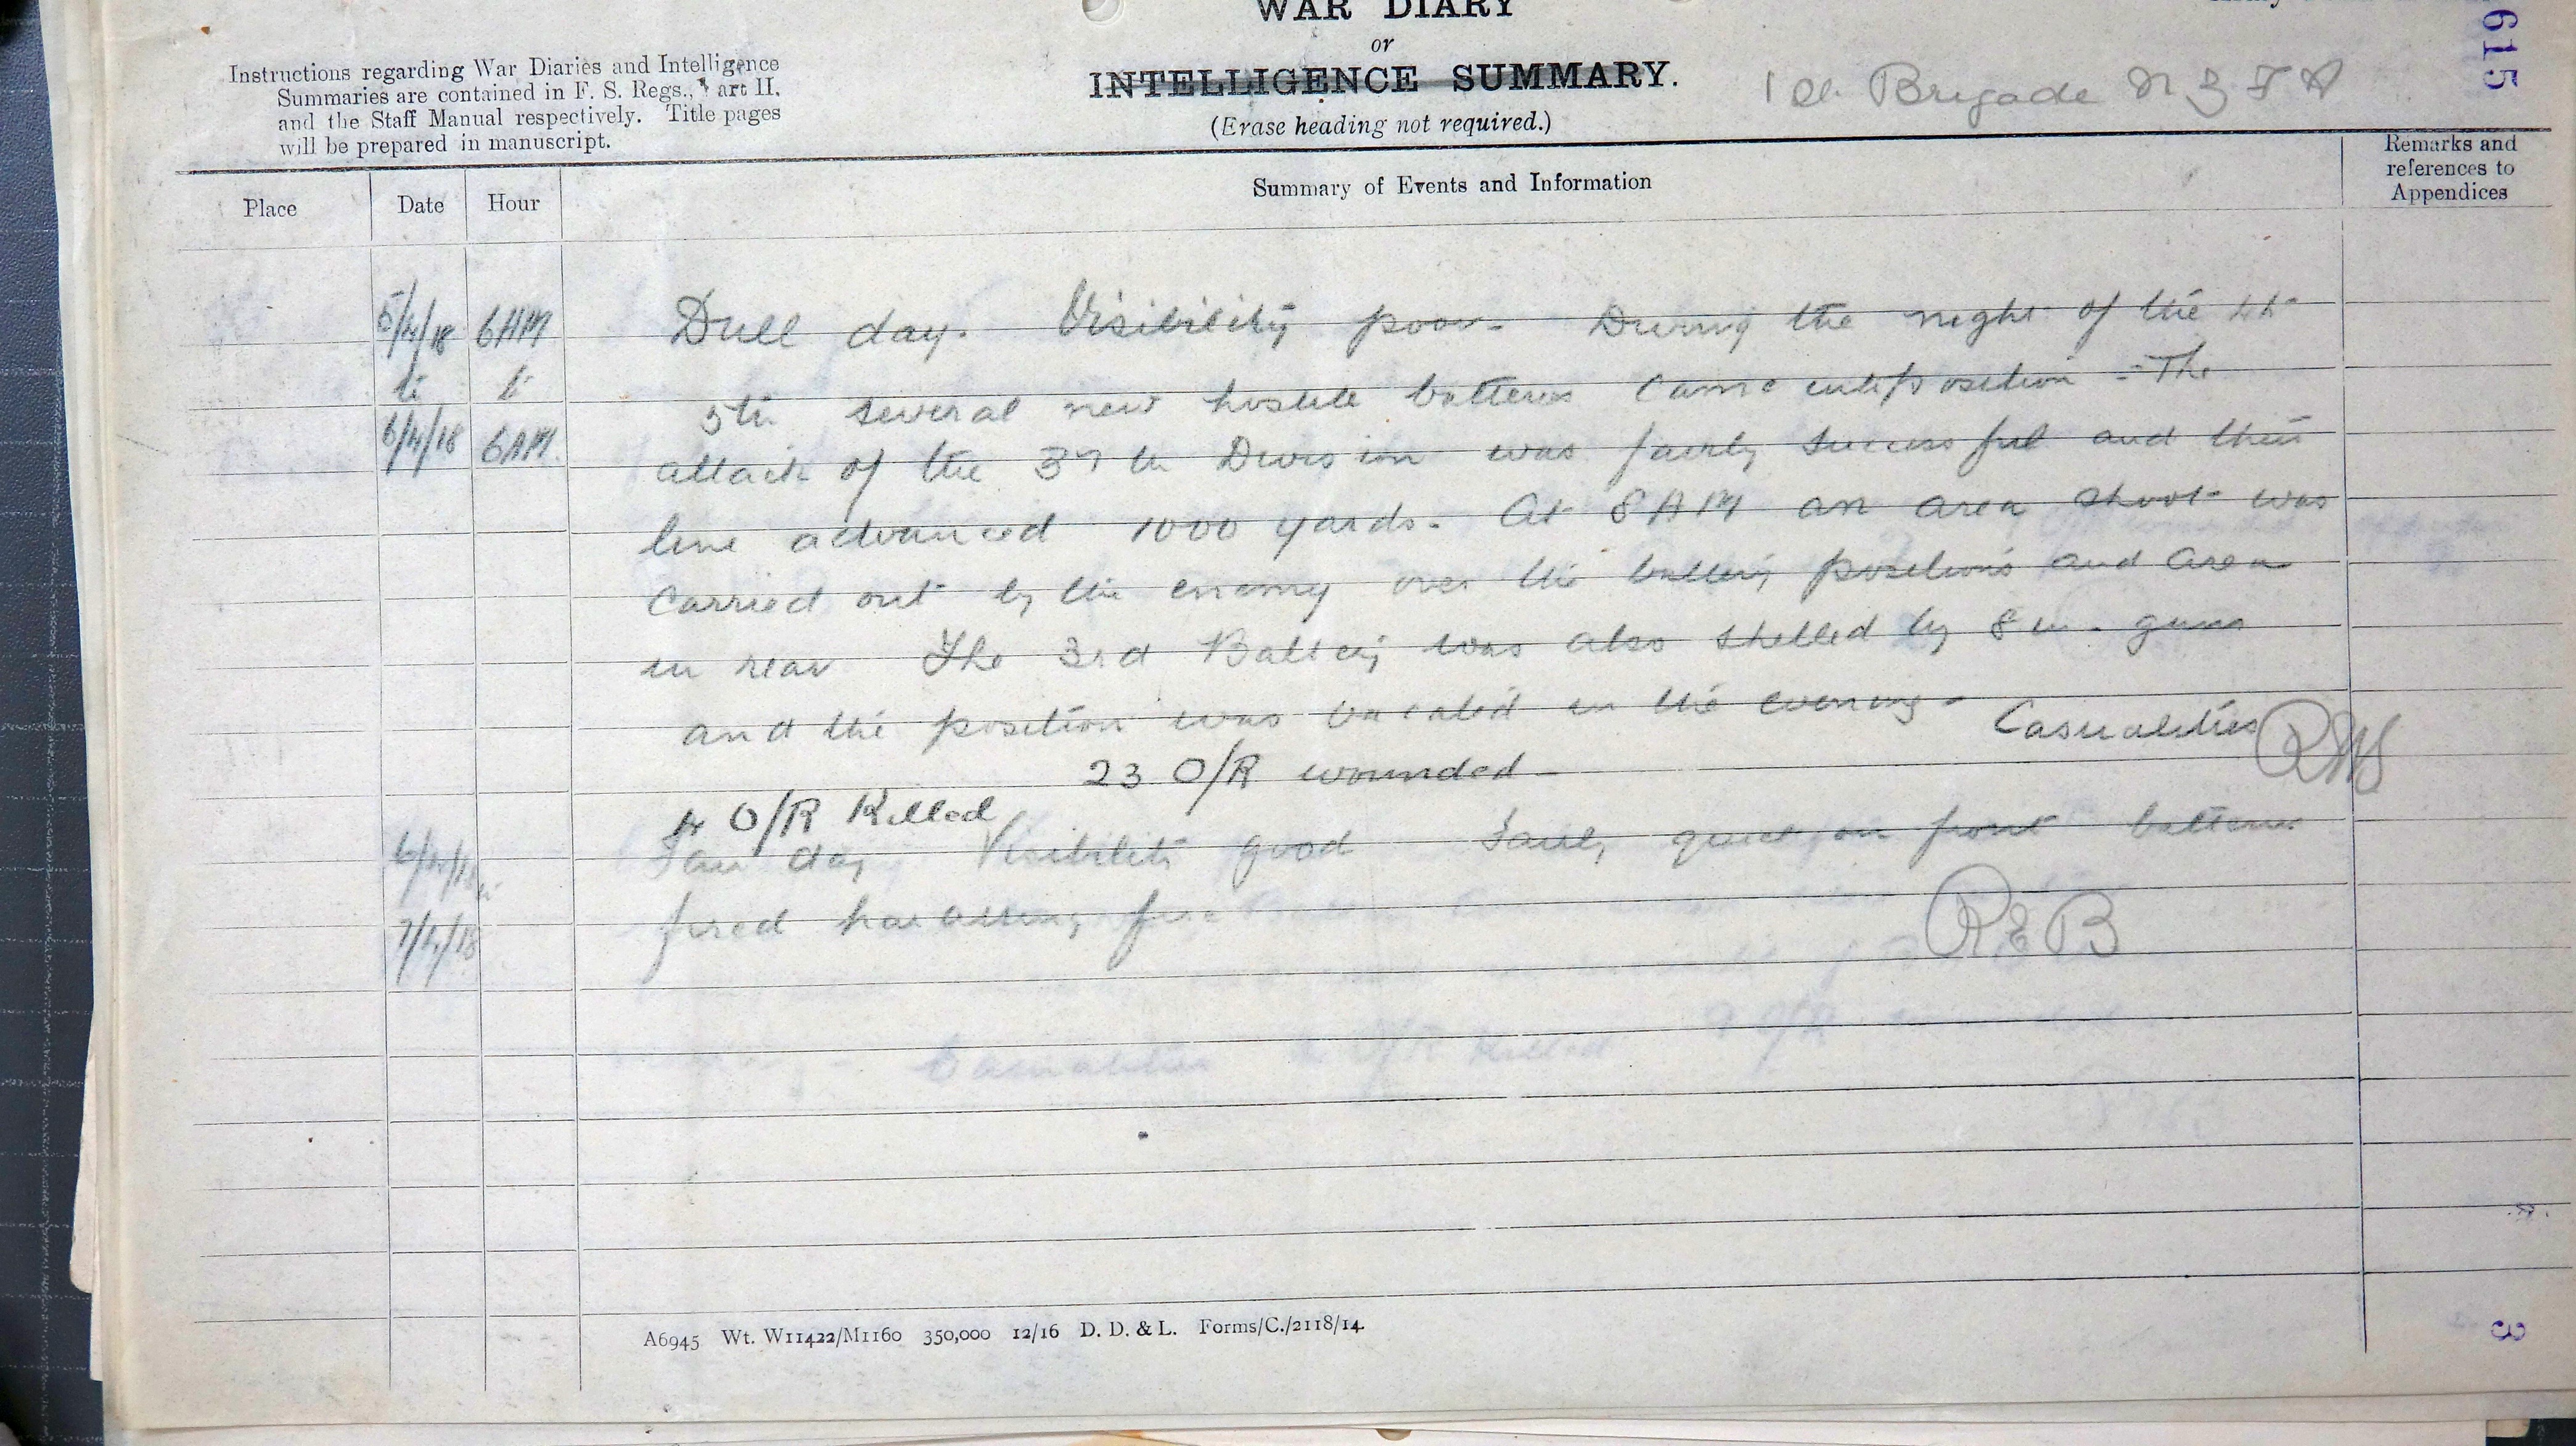 WAR DIARY
or
INTELLIGENCE SUMMARY.
(Erase heading not required.)
Instructions regarding War Diaries and Intelligence
Summaries are contained in F. S. Regs., Part II.
and the Staff Manual respectively. Title pages
will be prepared in manuscript.
1st Brigade N Z F A
615
Place Date Hour Summary of Events and Information Remarks and references to Appendices
5/4/18 6AM Dull day. Visibility poor. During the night of the 4th
to to 5th several new hostile batteries came into position - The
6/4/18 6AM. attack of the 37th Division was fairly successful and their
line advanced 1000 yards. At 8AM an area shoot was
carried out by the enemy over the battery positions and area
in rear The 3rd Battery was also shelled by 8 in. guns
and the position was vacated in the evening - Casualities
4 O/R Killed 23 O/R wounded -
6/4/18 to Fair day Visibility good Fairly quiet on front batteries
7/4/18 fired harassing fire
REB
A6945 Wt. W11422/M1160 350,000 12/16 D. D. & L. Forms/C./2118/14.
3